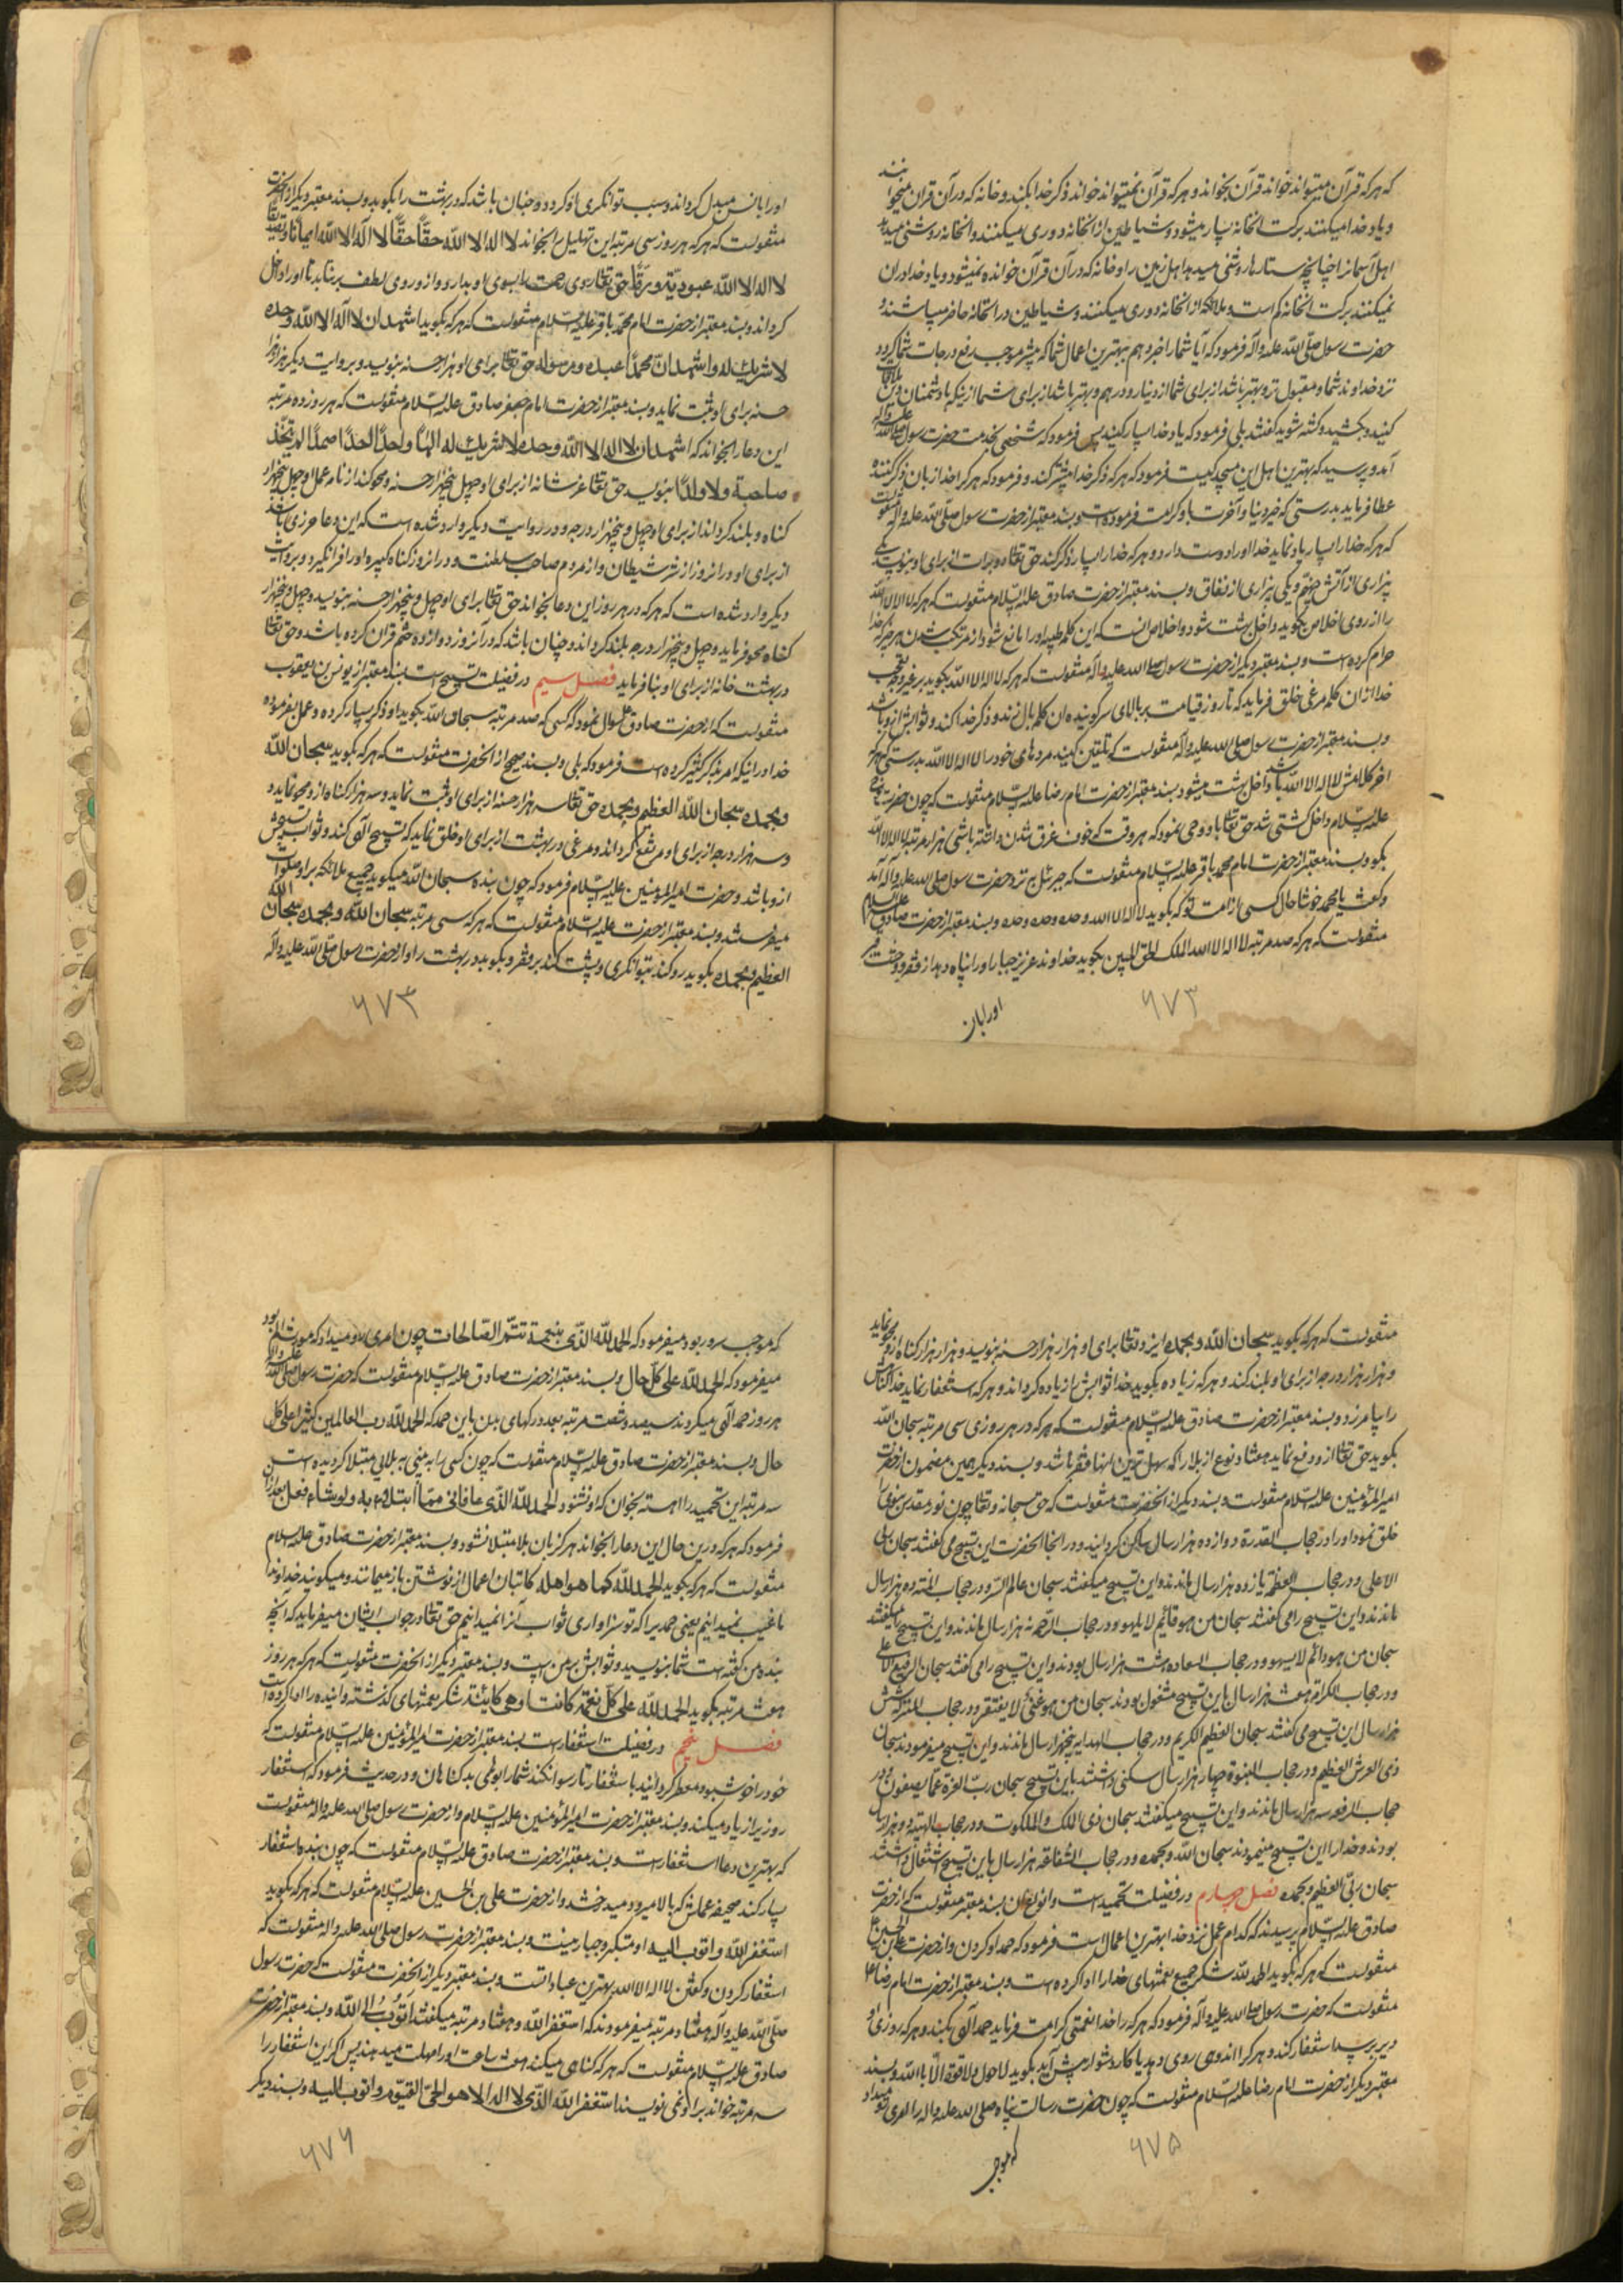 که هرکه قرآن میتواند خواند قرآن بخواند و هرکه قرآن نمیتواند خواند ذکر خدا بکند و خانه که در آن قران میخوانند
و یاد خدا میکنند برکت آنخانه بسیار میشود و شیاطین از آنخانه دوری میکنند و آنخانه روشنی میدهد
اهل آسمانرا چنانچه ستارها روشنی میدهد اهل زمین را و خانه که در آن قرآن خوانده نمیشود و یاد خدا در آن
نمیکنند برکت آنخانه کم است و ملائکه از آنخانه دوری میکنند و شیاطین در آنخانه حاضر میباشند و
حضرت رسول صلّی اللّه علیه وآله فرمود که آیا شما را خبر دهم ببهترین اعمال شما که بیشتر موجب رفع درجات شما گردد
نزد خداوند شما و مقبول تر و بهتر باشد از برای شما از دینار و درهم و بهتر باشد از برای شما از اینکه با دشمنان دین ملاقات
کنید و بکشید و کشته شوید گفتند بلی فرمود که یاد خدا بسیار کنید پس فرمود که شخصی بخدمت حضرت رسول صلی الله علیه وآله
آمد و پرسید که بهترین اهل این مسجد کیست فرمود که هرکه ذکر خدا بیشتر کند و فرمود که هرکرا خدا زبان ذکر کننده
عطا فرماید بدرستی که خیر دنیا و آخرت باو کرامت فرموده است و بسند معتبر از حضرت رسول صلّی اللّه علیه وآله منقولست
که هرکه خدا را بسیار یاد نماید خدا او را دوست دارد و هرکه خدا را بسیار ذکر کند حق تعالی دو برات از برای او بنویسد یکی
بیزاری از آتش جهنّم و یکی بیزاری از نفاق و بسند معتبر از حضرت صادق علیه السّلام منقولست که هرکه لا اله الا اللّه
را از روی اخلاص بگوید داخل بهشت شود و اخلاص آنست که این کلمه طیبه او را مانع شود از مرتکب شدن هرچه خدا
حرام کرده است و بسند معتبر دیگر از حضرت رسول صلی الله علیه وآله منقولست که هرکه لا اله الا اللّه بگوید
خدا از آن کلمه مرغی خلق فرماید که تا روز قیامت بر بالای سر گوینده آن کلمه بال زند و ذکر خدا کند و ثوابش از او باشد
و بسند معتبر از حضرت رسول صلی الله علیه وآله منقولست که تلقین کنید مرده‌های خود را لا اله الا اللّه بدرستی که هرکه
اخر کلامش لا اله الا اللّه باشد داخل بهشت میشود بسند معتبر از حضرت امام رضا علیه السّلام منقولست که چون حضرت نوح
علیه السّلام داخل کشتی شد حق تعالی باو وحی نمود که هر وقت که خوف غرق شدن داشته باشی هزار مرتبه لا اله الا اللّه
بگو و بسند معتبر از حضرت امام محمد باقر علیه السّلام منقولست که جبرئیل نزد حضرت رسول صلی الله علیه وآله آمد
و گفت یا محمد خوشا حال کسی از امت تو که بگوید لا اله الا الله وحده وحده وحده و بسند معتبر از حضرت صادق علیه السلام
منقولست که هرکه صد مرتبه لا اله الا الله الملک الحق المبین بگوید خداوند عزیز جبار او را پناه دهد از فقر و وحشت قبر
او را بان
۶۷۳
او را بانس مبدل گرداند و سبب توانگری او گردد و چنان باشد که در بهشت را بکوبد و بسند معتبر دیگر از آنحضرت
منقولست که هرکه هر روز سی مرتبه این تهلیل را بخواند لا اله الا اللّه حقّاً حقّاً لا اله الا اللّه ایماناً و تصدیقاً
لا اله الا اللّه عبودیّة و رقّاً حق تعالی روی رحمت را بسوی او بدارد و از او روی لطف برنتابد تا او را داخل
گرداند و بسند معتبر از حضرت امام محمد باقر علیه السّلام منقولست که هرکه بگوید اشهد ان لا اله الا اللّه وحده
لا شریک له و اشهد انّ محمّداً عبده و رسوله حق تعالی برای او هزار حسنه بنویسد و بروایت دیگر هزار هزار
حسنه برای او ثبت نماید و بسند معتبر از حضرت امام جعفر صادق علیه السّلام منقولست که هر روز ده مرتبه
این دعا را بخواند که اشهد ان لا اله الا اللّه وحده لا شریک له الهاً واحداً احداً صمداً لم یتّخذ
صاحبة و لا ولداً بنویسد حق تعالی عز شانه از برای او چهل و پنجهزار حسنه و محو کند از نامه عمل او چهل و پنجهزار
گناه و بلند گرداند از برای او چهل و پنجهزار درجه و در روایت دیگر وارد شده است که این دعا حرزی باشد
از برای او در آنروز از شر شیطان و از مردم صاحب سلطنت و در آنروز گناه کبیره او را فرانگیرد و بروایت
دیگر وارد شده است که هرکه در هر روز این دعا بخواند حق تعالی برای او چهل و پنجهزار حسنه بنویسد و چهل و پنجهزار
گناه محو فرماید و چهل و پنجهزار درجه بلند گرداند و چنان باشد که در آنروز دوازده ختم قران کرده باشد و حق تعالی
در بهشت خانه از برای او بنا فرماید فصل سیم در فضیلت تسبیح است بسند معتبر از یونس بن یعقوب
منقولست که از حضرت صادق سوال نمود که کسی که صد مرتبه سبحان اللّه بگوید او ذکر بسیار کرده و عمل بفرموده
خدا در اینکه امر بذکر کثیر کرده است فرمود که بلی و بسند صحیح از آنحضرت منقولست که هرکه بگوید سبحان اللّه
و بحمده سبحان اللّه العظیم و بحمده حق تعالی سه هزار حسنه از برای او ثبت نماید و سه هزار گناه از او محو نماید و
و سه هزار درجه از برای او مرتفع گرداند و مرغی در بهشت از برای او خلق نماید که تسبیح الهی کند و ثواب تسبیحش
از او باشد و حضرت امیرالمؤمنین علیه السّلام فرمود که چون بنده سبحان اللّه میگوید جمیع ملائکه بر او صلوات
میفرستند و بسند معتبر از حضرت علیه السّلام منقولست که هرکه سی مرتبه سبحان اللّه و بحمده سبحان اللّه
العظیم و بحمده بگوید رو کند بتوانگری و پشت کند بر فقر و بکوبد در بهشت را و از حضرت رسول صلی اللّه علیه وآله
۶۷۴
منقولست که هرکه بگوید سبحان اللّه و بحمده ایزد تعالی برای او هزار هزار حسنه بنویسد و هزار هزار گناه ازو محو نماید
و هزار هزار درجه از برای او بلند کند و هرکه زیاده بگوید خدا ثوابش را زیاده گرداند و هرکه استغفار نماید خدا گناهش
را بیامرزد و بسند معتبر از حضرت صادق علیه السّلام منقولست که هرکه در هر روزی سی مرتبه سبحان اللّه
بگوید حق تعالی ازو دفع نماید هفتاد نوع از بلا را که سهل ترین آنها فقر باشد و بسند دیگر همین مضمون از حضرت
امیرالمؤمنین علیه السّلام منقولست و بسند دیگر از آنحضرت منقولست که حق سبحانه و تعالی چون نور مقدس نبوی را
خلق نمود او را در حجاب القدرة دوازده هزار سال ساکن گردانید و در آنجا آنحضرت این تسبیح می گفتند سبحان ربی
الاعلی و در حجاب العظمة یازده هزار سال ماندند و این تسبیح میگفتند سبحان عالم السّر و در حجاب المنه ده هزار سال
ماندند و این تسبیح را می گفتند سبحان من هو قائم لا یلهو و در حجاب الرّحمه نه هزار سال ماندند و این تسبیح میگفتند
سبحان من هو دائم لا یسهو و در حجاب السعاده هشت هزار سال بودند و این تسبیح را می گفتند سبحان الرفیع الاعلی
و در حجاب الکرامه هفت هزار سال باین تسبیح مشغول بودند سبحان من هو غنی لا یفتقر و در حجاب المنزله شش
هزار سال این تسبیح می گفتند سبحان العظیم الکریم و در حجاب الهدایه پنجهزار سال ماندند و این تسبیح میفرمودند سبحان
ذی العرش العظیم و در حجاب النبوة چهار هزار سال سکنی داشتند باین تسبیح سبحان ربّ العزة عمّا یصفون و در
حجاب الرفعه سه هزار سال ماندند و این تسبیح میگفتند سبحان ذی الملک و الملکوت و در حجاب الهیبة دو هزار سال
بودند و خدا را این تسبیح مینمودند سبحان اللّه و بحمده و در حجاب الشفاعة هزار سال باین تسبیح اشتغال داشتند
سبحان ربّی العظیم و بحمده فصل چهارم در فضیلت تحمید است و انواع آن بسند معتبر منقولست که از حضرت
صادق علیه السّلام پرسیدند که کدام عمل نزد خدا بهترین اعمال است فرمود که حمد او کردن و از حضرت علی بن الحسین
منقولست که هرکه بگوید الحمد للّه شکر جمیع نعمتهای خدا را ادا کرده است و بسند معتبر از حضرت امام رضا
منقولست که حضرت رسول صلی الله علیه وآله فرمود که هرکه را خدا نعمتی کرامت فرماید حمد الهی بکند و هرکه روزی او
دیر برسد استغفار کند و هرکرا اندوهی روی دهد یا کار دشوار پیش آید بگوید لا حول و لا قوة الا باللّه و بسند
معتبر دیگر از حضرت امام رضا علیه السّلام منقولست که چون حضرت رسالت پناه صلی الله علیه واله را امری رو میداد
که موجب
۶۷۵
که موجب سرور بود میفرمود که الحمد للّه الّذی بنعمته تتمّ الصّالحات چون امری رو میداد که موجب الم بود
میفرمود که الحمد للّه علی کلّ حال و بسند معتبر از حضرت صادق علیه السّلام منقولست که حضرت رسول صلی الله علیه واله
هر روز حمد الهی میکردند سیصد و شصت مرتبه بعدد رگهای بدن باین حمد که الحمد للّه ربّ العالمین کثیراً علی کل
حال و بسند معتبر از حضرت صادق علیه السّلام منقولست که چون کسی را به بینی به بلائی مبتلا گردیده است
سه مرتبه این تحمید را آهسته بخوان که او نشنود الحمد للّه الّذی عافانی ممّا ابتلاک به و لو شاء فعل بعد از آن
فرمود که هرکه درین حال این دعا را بخواند هرگز بآن بلا مبتلا نشود و بسند معتبر از حضرت صادق علیه السلام
منقولست که هرکه بگوید الحمد للّه کما هو اهله کاتبان اعمال از نوشتن باز میمانند و میگویند خداوندا
ما غیب نمیدانیم یعنی حمدیرا که تو سزاواری ثواب آنرا نمیدانیم حق تعالی در جواب ایشان میفرماید که آنچه
بنده من گفته است شما بنویسید و ثوابش بر من است و بسند معتبر دیگر از آنحضرت منقولست که هرکه هر روز
هفت مرتبه بگوید الحمد للّه علی کلّ نعمة کانت او هی کائنة شکر نعمتهای گذشته و آینده را ادا کرده است
فصل پنجم در فضیلت استغفار است بسند معتبر از حضرت امیرالمؤمنین علیه السّلام منقولست که
خود را خوشبو و معطر گردانید باستغفار تا رسوا نکند شما را بوهای بد گناهان و در حدیث فرمود که استغفار
روزیرا زیاد میکند و بسند معتبر از حضرت امیرالمؤمنین علیه السّلام و از حضرت رسول صلی الله علیه واله منقولست
که بهترین دعا استغفار است و بسند معتبر از حضرت صادق علیه السّلام منقولست که چون بنده استغفار
بسیار کند صحیفه عملش که بالا میرود میدرخشد و از حضرت علی بن الحسین علیه السّلام منقولست که هرکه بگوید
استغفر اللّه و اتوب الیه او متکبر و جبار نیست و بسند معتبر از حضرت رسول صلی الله علیه واله منقولست که
استغفار کردن و گفتن لا اله الا الله بهترین عباداتست و بسند معتبر دیگر از آنحضرت منقولست که حضرت رسول
صلّی اللّه علیه وآله هفتاد مرتبه میفرمودند که استغفر اللّه و هفتاد مرتبه میگفتند اتوب الی اللّه و بسند معتبر از حضرت
صادق علیه السّلام منقولست که هرکه گناهی میکند هفت ساعت او را مهلت میدهند پس اگر این استغفار را
سه مرتبه خواند بر او نمی نویسند استغفر اللّه الّذی لا اله الا هو الحیّ القیّوم و اتوب الیه و بسند دیگر
۶۷۶